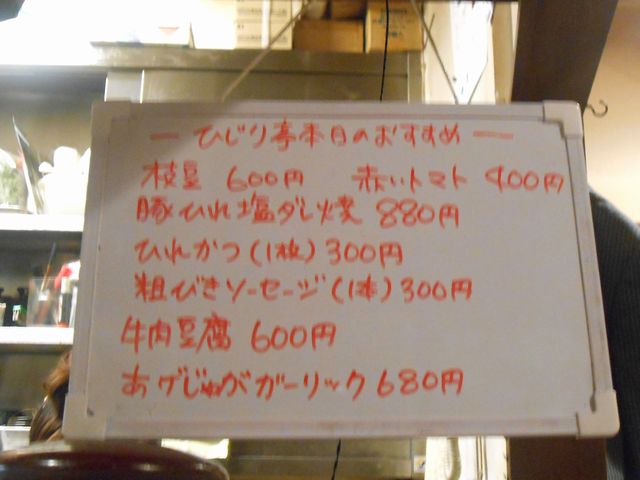 ー ひじり亭本日のおすすめ ー
枝豆 600円 赤いトマト 400円
豚ひれ塩ダレ焼 880円
ひれかつ(1枚)300円
粗びきソーセージ(1本)300円
牛肉豆腐 600円
あげじゃがガーリック 680円